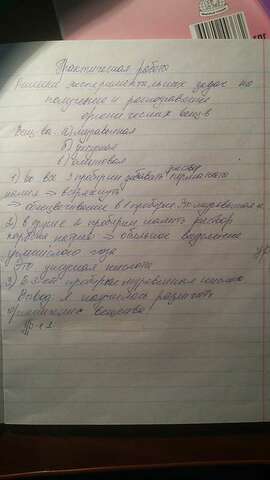 Практическая работа
Решение экспериментальных задач на
получение и распознавание
органических вещ-в
Вещ-ва: а) муравьиная
б) уксусная
в)
1) во все 3 пробирки добавить раствор
калия => встряхнуть
=> обесцвечивание в 1 пробирке Это муравьиная к
2) в другие 2 пробирки налить раствор
карбоната натрия => обильное выделение
углекислого газа
Это уксусная кислота
3) В пробирке кислота
Вывод: я научилась различать
органические вещества